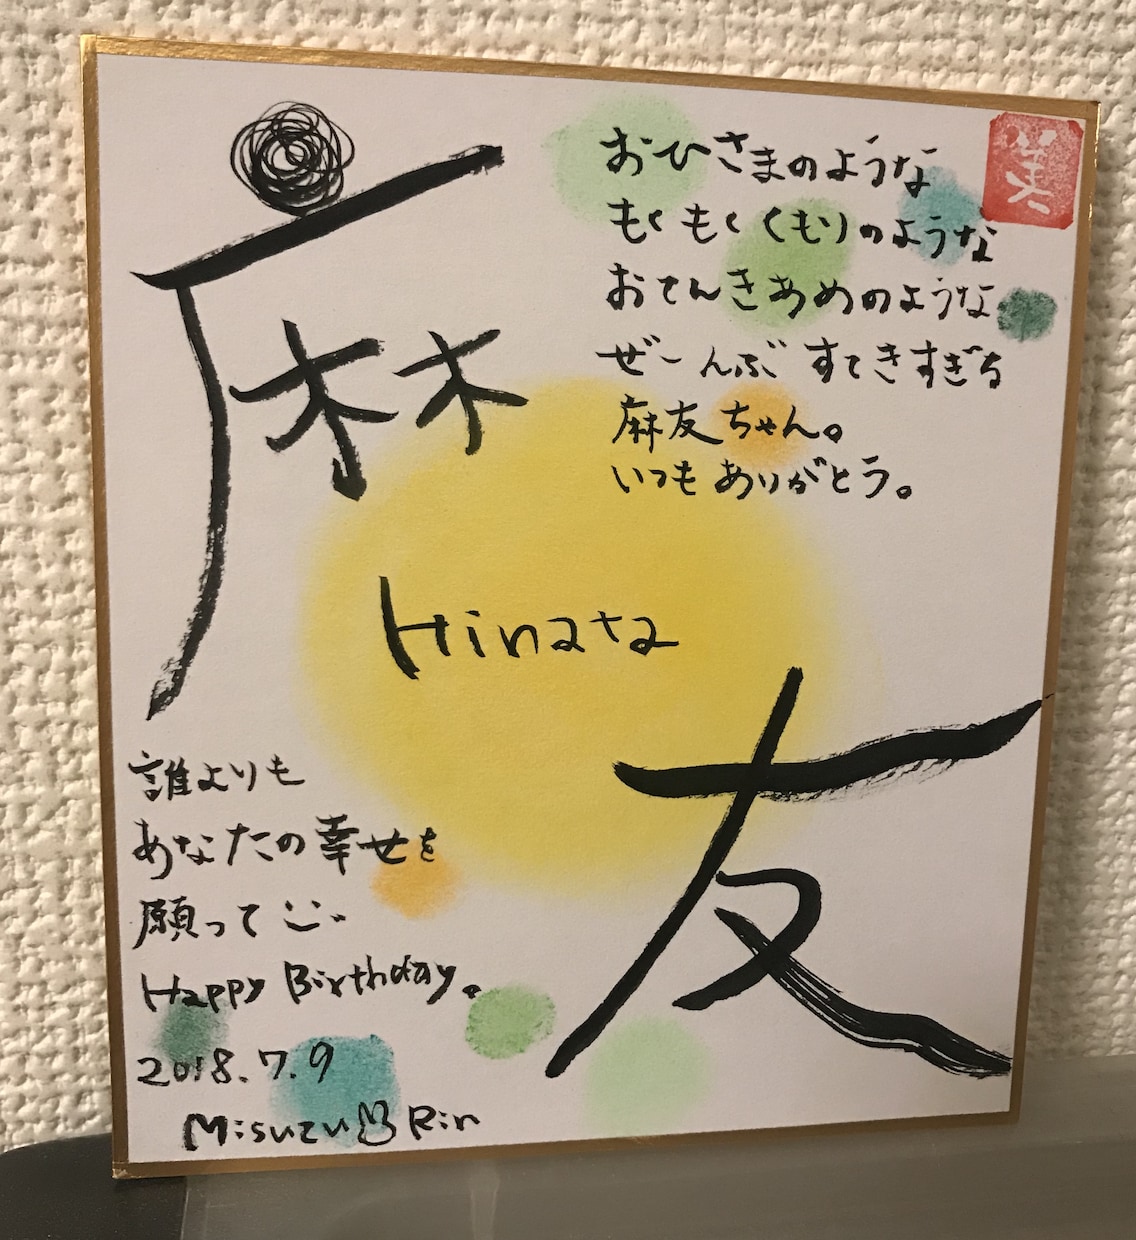 麻友
Hinata
おひさまのような
もくもくくもりのような
おてんきあめのような
ぜーんぶすてきすぎる
麻友ちゃん。
いつもありがとう。
誰よりも
あなたの幸せを
願って
Happy Birthday.
2018.7.9
Misuzu Rin
美